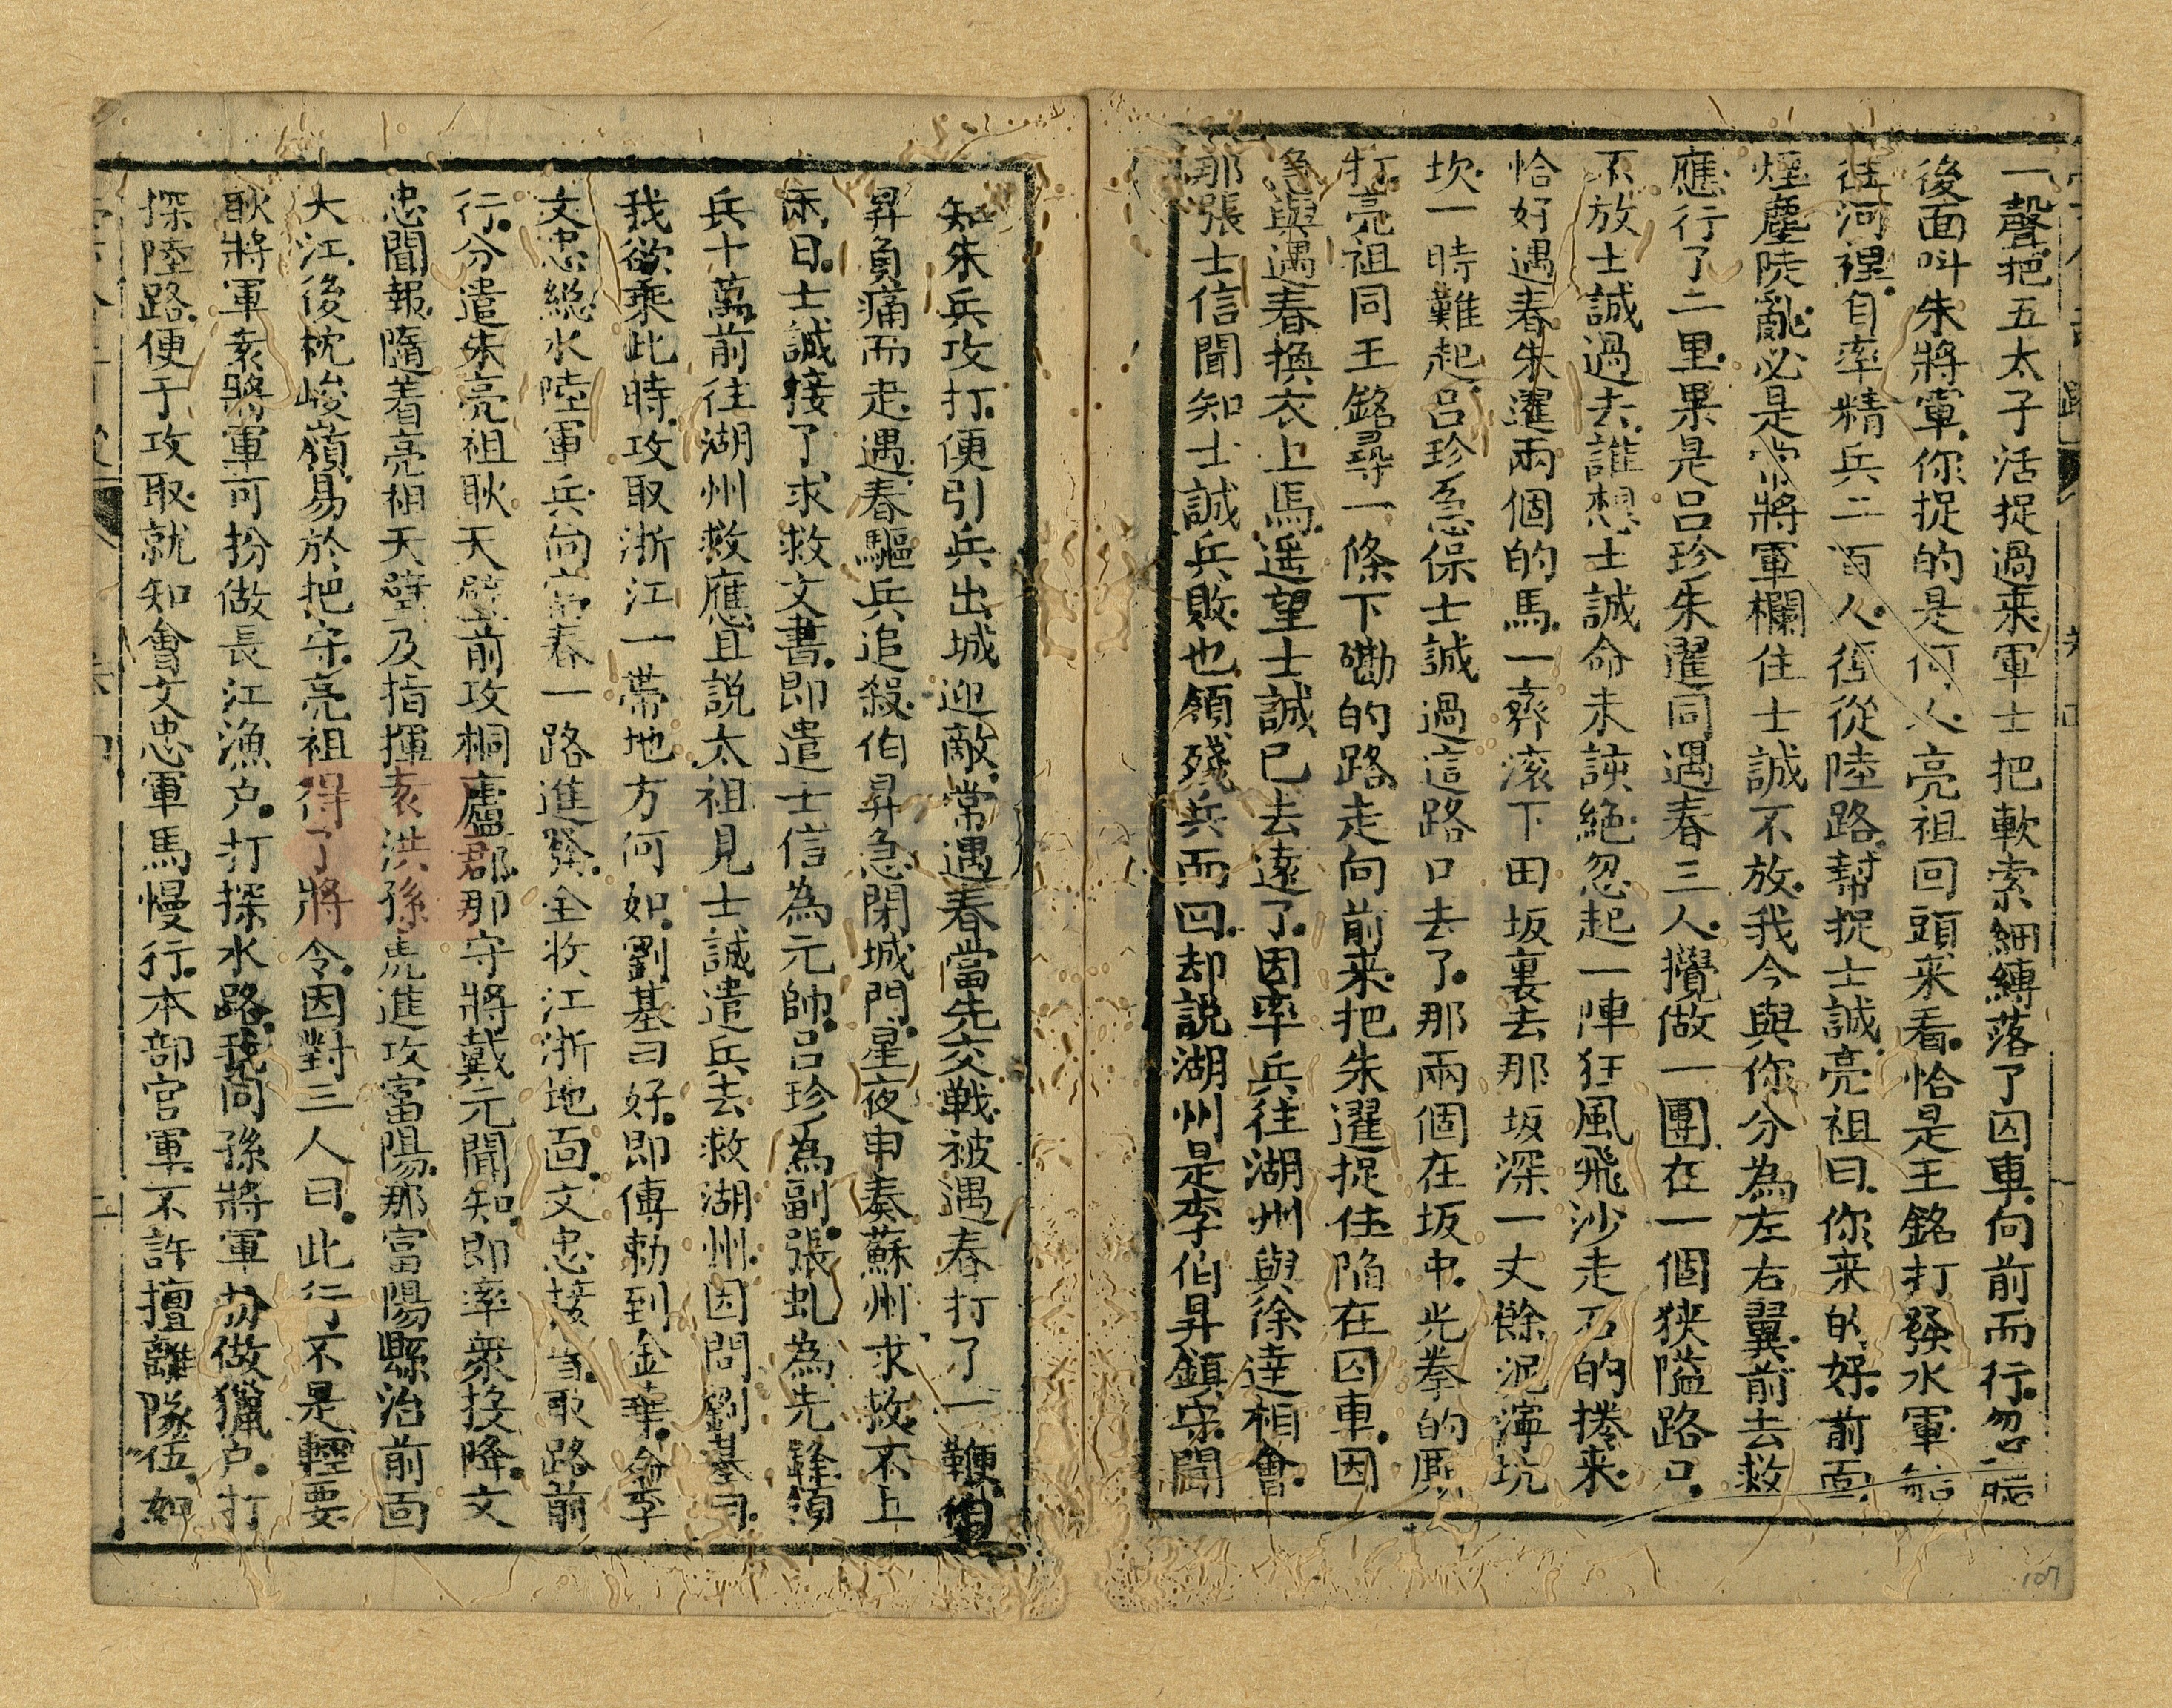 一聲把五太子活捉過来軍士把軟索細縛落了囚車向前而行忽聽
後面叫朱將軍你捉的是何人亮祖回頭来看恰是王銘打發水軍船
往河裡自率精兵二百人徑從陸路幫捉士誠亮祖曰你来的好前面
煙塵陡亂必是常將軍欄住士誠不放我今與你分為左右翼前去救
應行了二里果是呂珍朱暹同遇春三人攪做一團在一個狹隘路口
不放士誠過去誰想士誠命未該絶忽起一陣狂風飛沙走石的捲来
恰好遇春朱暹兩個的馬一齊滚下田坂裏去那坂深一丈餘泥濘坑
坎一時難起呂珍急保士誠過這路口去了那兩個在坂中光拳的厮
打亮祖同王銘尋一條下磡的路走向前来把朱暹捉住陷在囚車因
急與遇春換衣上馬遥望士誠已去遠了因率兵往湖州與徐達相會
那張士信聞知士誠兵敗也領殘兵而回却説湖州是李伯昇鎮守聞
知朱兵攻打便引兵出城迎敵常遇春當先交戰被遇春打了一鞭伯
昇負痛而走遇春驅兵追殺伯昇急閉城門星夜申奏蘇州求救不上
兩日士誠接了求救文書即遣士信為元帥呂珍為副張虬為先鋒領
兵十萬前往湖州救應且説太祖見士誠遣兵去救湖州因問劉基曰
我欲乘此時攻取浙江一帶地方何如劉基曰好即傳勅到金華命李
文忠總水陸軍兵向富春一路進發全收江浙地面文忠接旨取路前
行分遣朱亮祖耿天璧前攻桐廬郡那守將戴元聞知即率衆投降文
忠聞報隨着亮祖天璧及指揮袁洪孫虎進攻富陽那富陽縣治前面
大江後枕峻嶺易於把守亮祖得了將令因對三人曰此行不是輕要
耿將軍袁將軍可扮做長江漁户打探水路我同孫將軍扮做獵户打
探陸路便于攻取就知會文忠軍馬慢行本部官軍不許擅離隊伍如